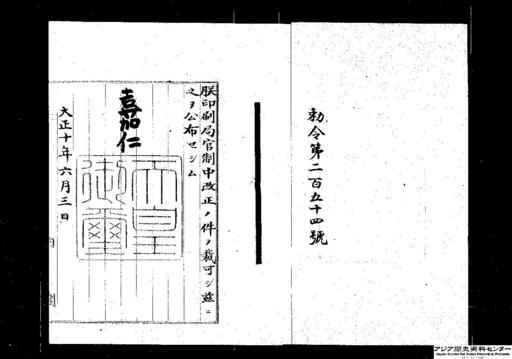 勅令第二百五十四號
朕印刷局官制中改正ノ件ヲ裁可シ茲ニ
之ヲ公布セシム
嘉仁
天皇
御璽
大正十年六月三日
内閣
アジア歴史資料センター
Japan Center for Asian Historical Records